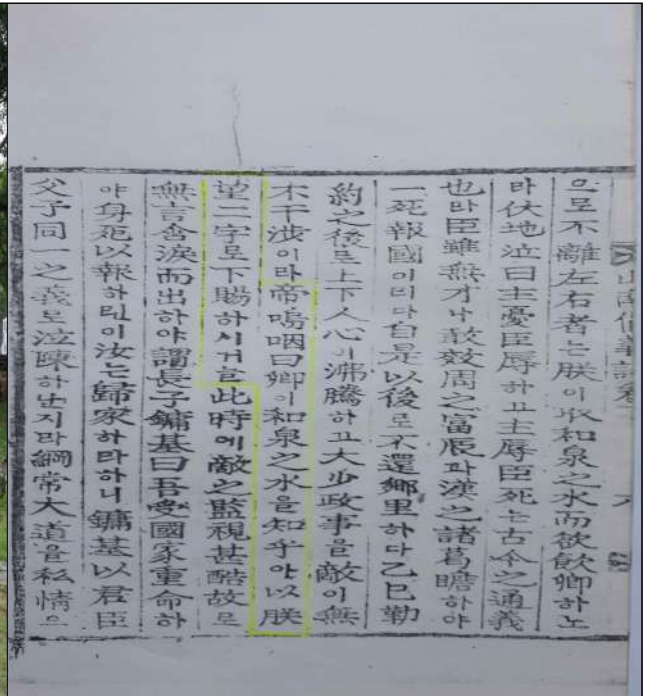 山南倡義誌卷
으로不離左右者는朕이取和泉之水而欲飮卿하노
라伏地泣曰主憂臣辱하고主辱臣死는古今之通義
也라臣雖無才나敢效周之富辰과漢之諸葛瞻하야
一死報國이리다自是以後로不還鄕里하다乙巳勒
約之後로上下人心이沸騰하고大少政事을敵이無
不干涉이라帝嗚咽曰卿이和泉之水을知乎아以朕
望二字로下賜하시거늘此時에敵之監視甚酷故로
無言含淚而出하야謂長子鏞基曰吾受國家重命하
야身死以報하린이汝는歸家하라하니鏞基以君臣
父子同一之義로泣陳하난지라綱常大道을私情으